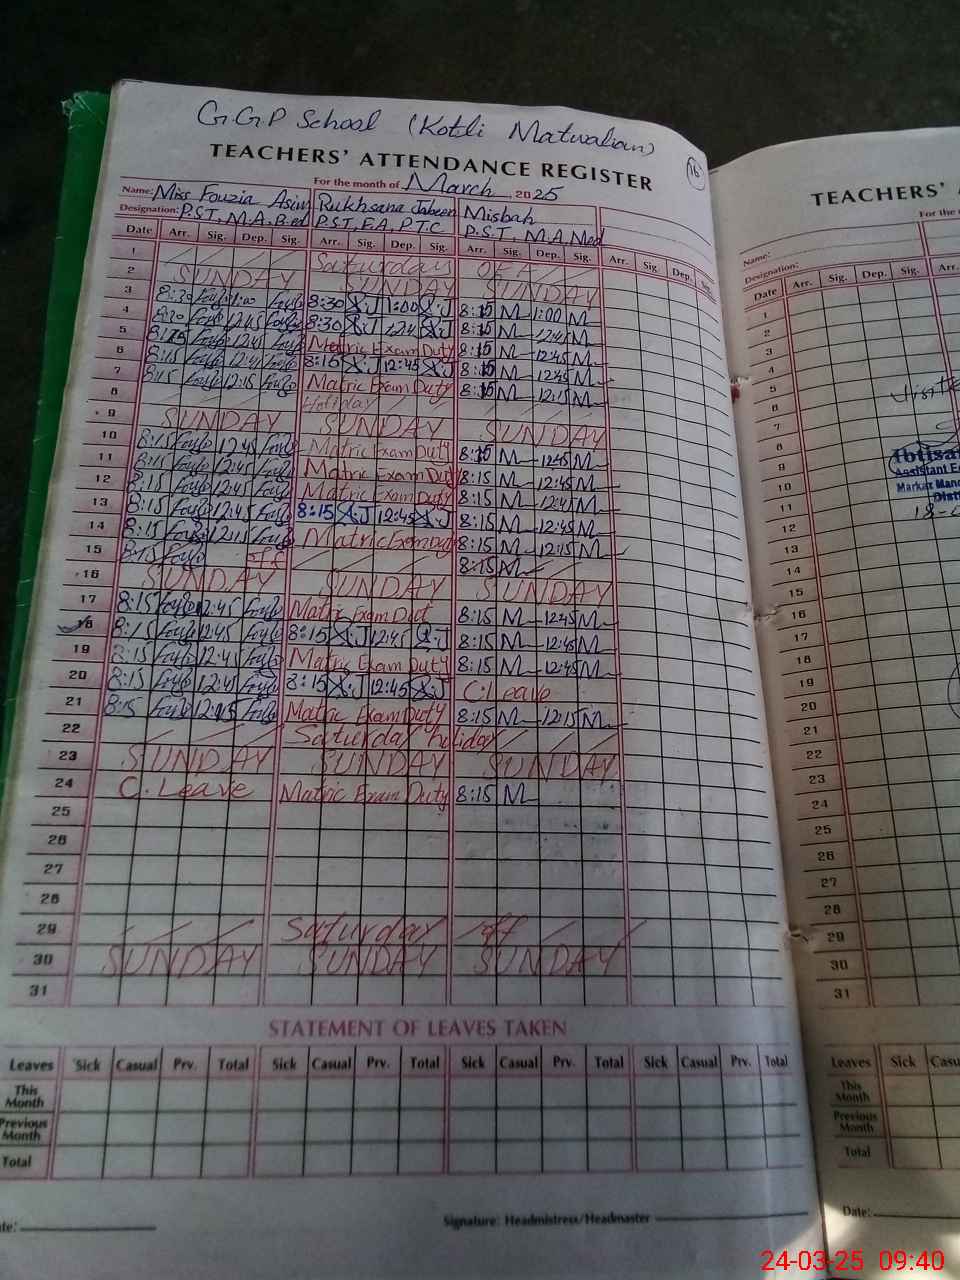 G.G.P School (Kotli Matwalian)
TEACHERS' ATTENDANCE REGISTER
16
For the month of March 2025
Name: Miss Fouzia Asim Rukhsana Jabeen Misbah
Designation: P.S.T, M.A, B.ed P.S.T, F.A, P.T.C P.S.T, M.A, Med
Date Arr. Sig. Dep. Sig. Arr. Sig. Dep. Sig. Arr. Sig. Dep. Sig. Arr. Sig. Dep. Sig.
1 Saturday OFF
2 SUNDAY SUNDAY SUNDAY
3 8:30 1:00 8:30 X.J 1:00 X.J 8:15 M 1:00 M
4 8:30 12:45 8:30 X.J 12:45 X.J 8:15 M 12:45 M
5 8:15 12:45 Matric Exam Duty 8:15 M 12:45 M
6 8:15 12:45 8:15 X.J 12:45 X.J 8:15 M 12:45 M
7 8:15 12:15 Matric Exam Duty 8:15 M 12:15 M
8 Holiday
9 SUNDAY SUNDAY SUNDAY
10 8:15 12:45 Matric Exam Duty 8:15 M 12:45 M
11 8:15 12:45 Matric Exam Duty 8:15 M 12:45 M
12 8:15 12:45 Matric Exam Duty 8:15 M 12:45 M
13 8:15 12:45 8:15 X.J 12:45 X.J 8:15 M 12:45 M
14 8:15 12:15 Matric Exam Duty 8:15 M 12:15 M
15 8:15 8:15 M
16 SUNDAY SUNDAY SUNDAY
17 8:15 12:45 Matric Exam Dut 8:15 M 12:45 M
18 8:15 12:45 8:15 X.J 12:45 X.J 8:15 M 12:45 M
19 8:15 12:45 Matric Exam Duty 8:15 M 12:45 M
20 8:15 12:45 8:15 X.J 12:45 X.J C.Leave
21 8:15 12:15 Matric Exam Duty 8:15 M 12:15 M
22 Saturday holiday
23 SUNDAY SUNDAY SUNDAY
24 C. Leave Matric Exam Duty 8:15 M
25
26
27
28
29 Saturday off
30 SUNDAY SUNDAY SUNDAY
31
STATEMENT OF LEAVES TAKEN
Leaves Sick Casual Prv. Total Sick Casual Prv. Total Sick Casual Prv. Total Sick Casual Prv. Total
This Month
Previous Month
Total
Signature: Headmistress/Headmaster
TEACHERS'
Name:
Designation:
Date Arr. Sig. Dep. Sig. Arr.
1
2
3
4
5
6
7
8
9
10
11
12
13
14
15
16
17
18
19
20
21
22
23
24
25
26
27
28
29
30
31
Assistant
Markaz
Leaves Sick
This Month
Previous Month
Total
Date:
24-03-25 09:40